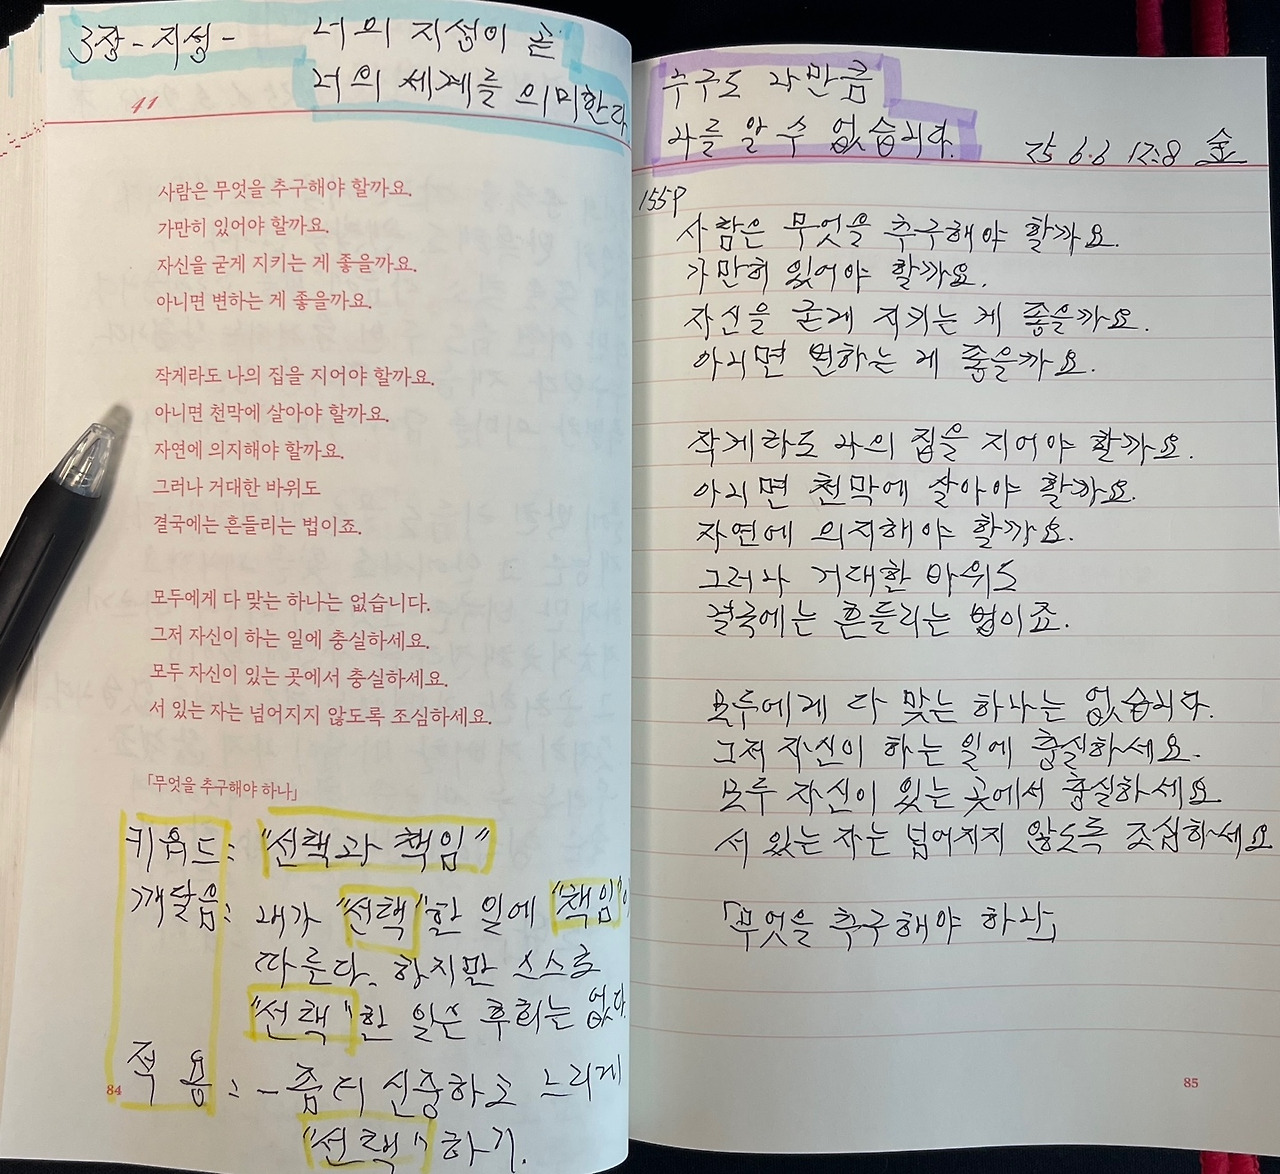 3장 - 지성 - 너의 지성이 곧
너의 세계를 의미한다
41
사람은 무엇을 추구해야 할까요.
가만히 있어야 할까요.
자신을 굳게 지키는 게 좋을까요.
아니면 변하는 게 좋을까요.
작게라도 나의 집을 지어야 할까요.
아니면 천막에 살아야 할까요.
자연에 의지해야 할까요.
그러나 거대한 바위도
결국에는 흔들리는 법이죠.
모두에게 다 맞는 하나는 없습니다.
그저 자신이 하는 일에 충실하세요.
모두 자신이 있는 곳에서 충실하세요.
서 있는 자는 넘어지지 않도록 조심하세요.
「무엇을 추구해야 하나」
키워드: "선택과 책임"
깨달음: 내가 "선택"한 일에 "책임"이
따른다. 하지만 스스로
"선택"한 일은 후회는 없다.
적용: - 좀 더 신중하고 느리게
"선택" 하기.
84
누구도 나만큼
나를 알 수 없습니다.
25 6.6 12:8 金
155P
사람은 무엇을 추구해야 할까요.
가만히 있어야 할까요.
자신을 굳게 지키는 게 좋을까요.
아니면 변하는 게 좋을까요.
작게라도 나의 집을 지어야 할까요.
아니면 천막에 살아야 할까요.
자연에 의지해야 할까요.
그러나 거대한 바위도
결국에는 흔들리는 법이죠.
모두에게 다 맞는 하나는 없습니다.
그저 자신이 하는 일에 충실하세요.
모두 자신이 있는 곳에서 충실하세요
서 있는 자는 넘어지지 않도록 조심하세요
「무엇을 추구해야 하나」
85